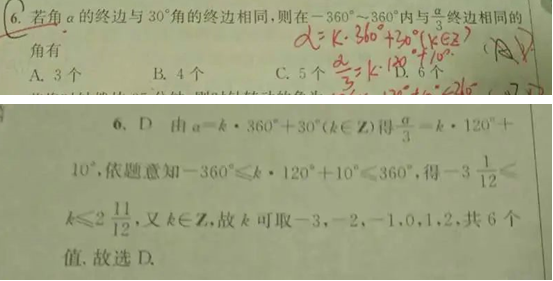 6. 若角α的终边与30°角的终边相同,则在-360°~360°内与α/3终边相同的
角有
α=k·360°+30°(k∈Z)
A. 3个 B. 4个 C. 5个 D. 6个
α/3=k·120°+10°
6. D 由α=k·360°+30°(k∈Z)得α/3=k·120°+
10°,依题意知-360°≤k·120°+10°≤360°,得-3 1/12≤
k≤2 11/12,又k∈Z,故k可取-3,-2,-1,0,1,2,共6个
值.故选D.